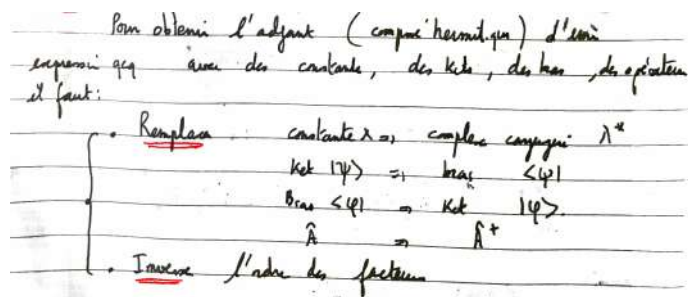 Pour obtenir l'adjoint (conjugué hermitique) d'une
expression qcq avec des constantes, des kets, des bras, des opérateurs
il faut:
. Remplacer constante λ ⇒ complexe conjugué λ*
Ket |ψ⟩ ⇒ bras ⟨ψ|
Bras ⟨φ| ⇒ Ket |φ⟩.
Â ⇒ Â⁺
. Inverse l'ordre des facteurs